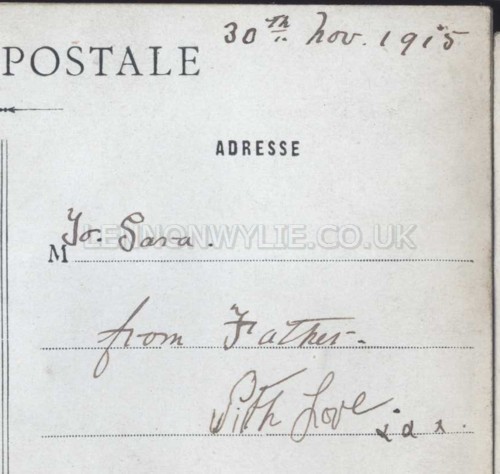 30th Nov. 1915
POSTALE
ADRESSE
To. Sara.
LENNONWYLIE.CO.UK
M
from Father.
With Love x.a.x.